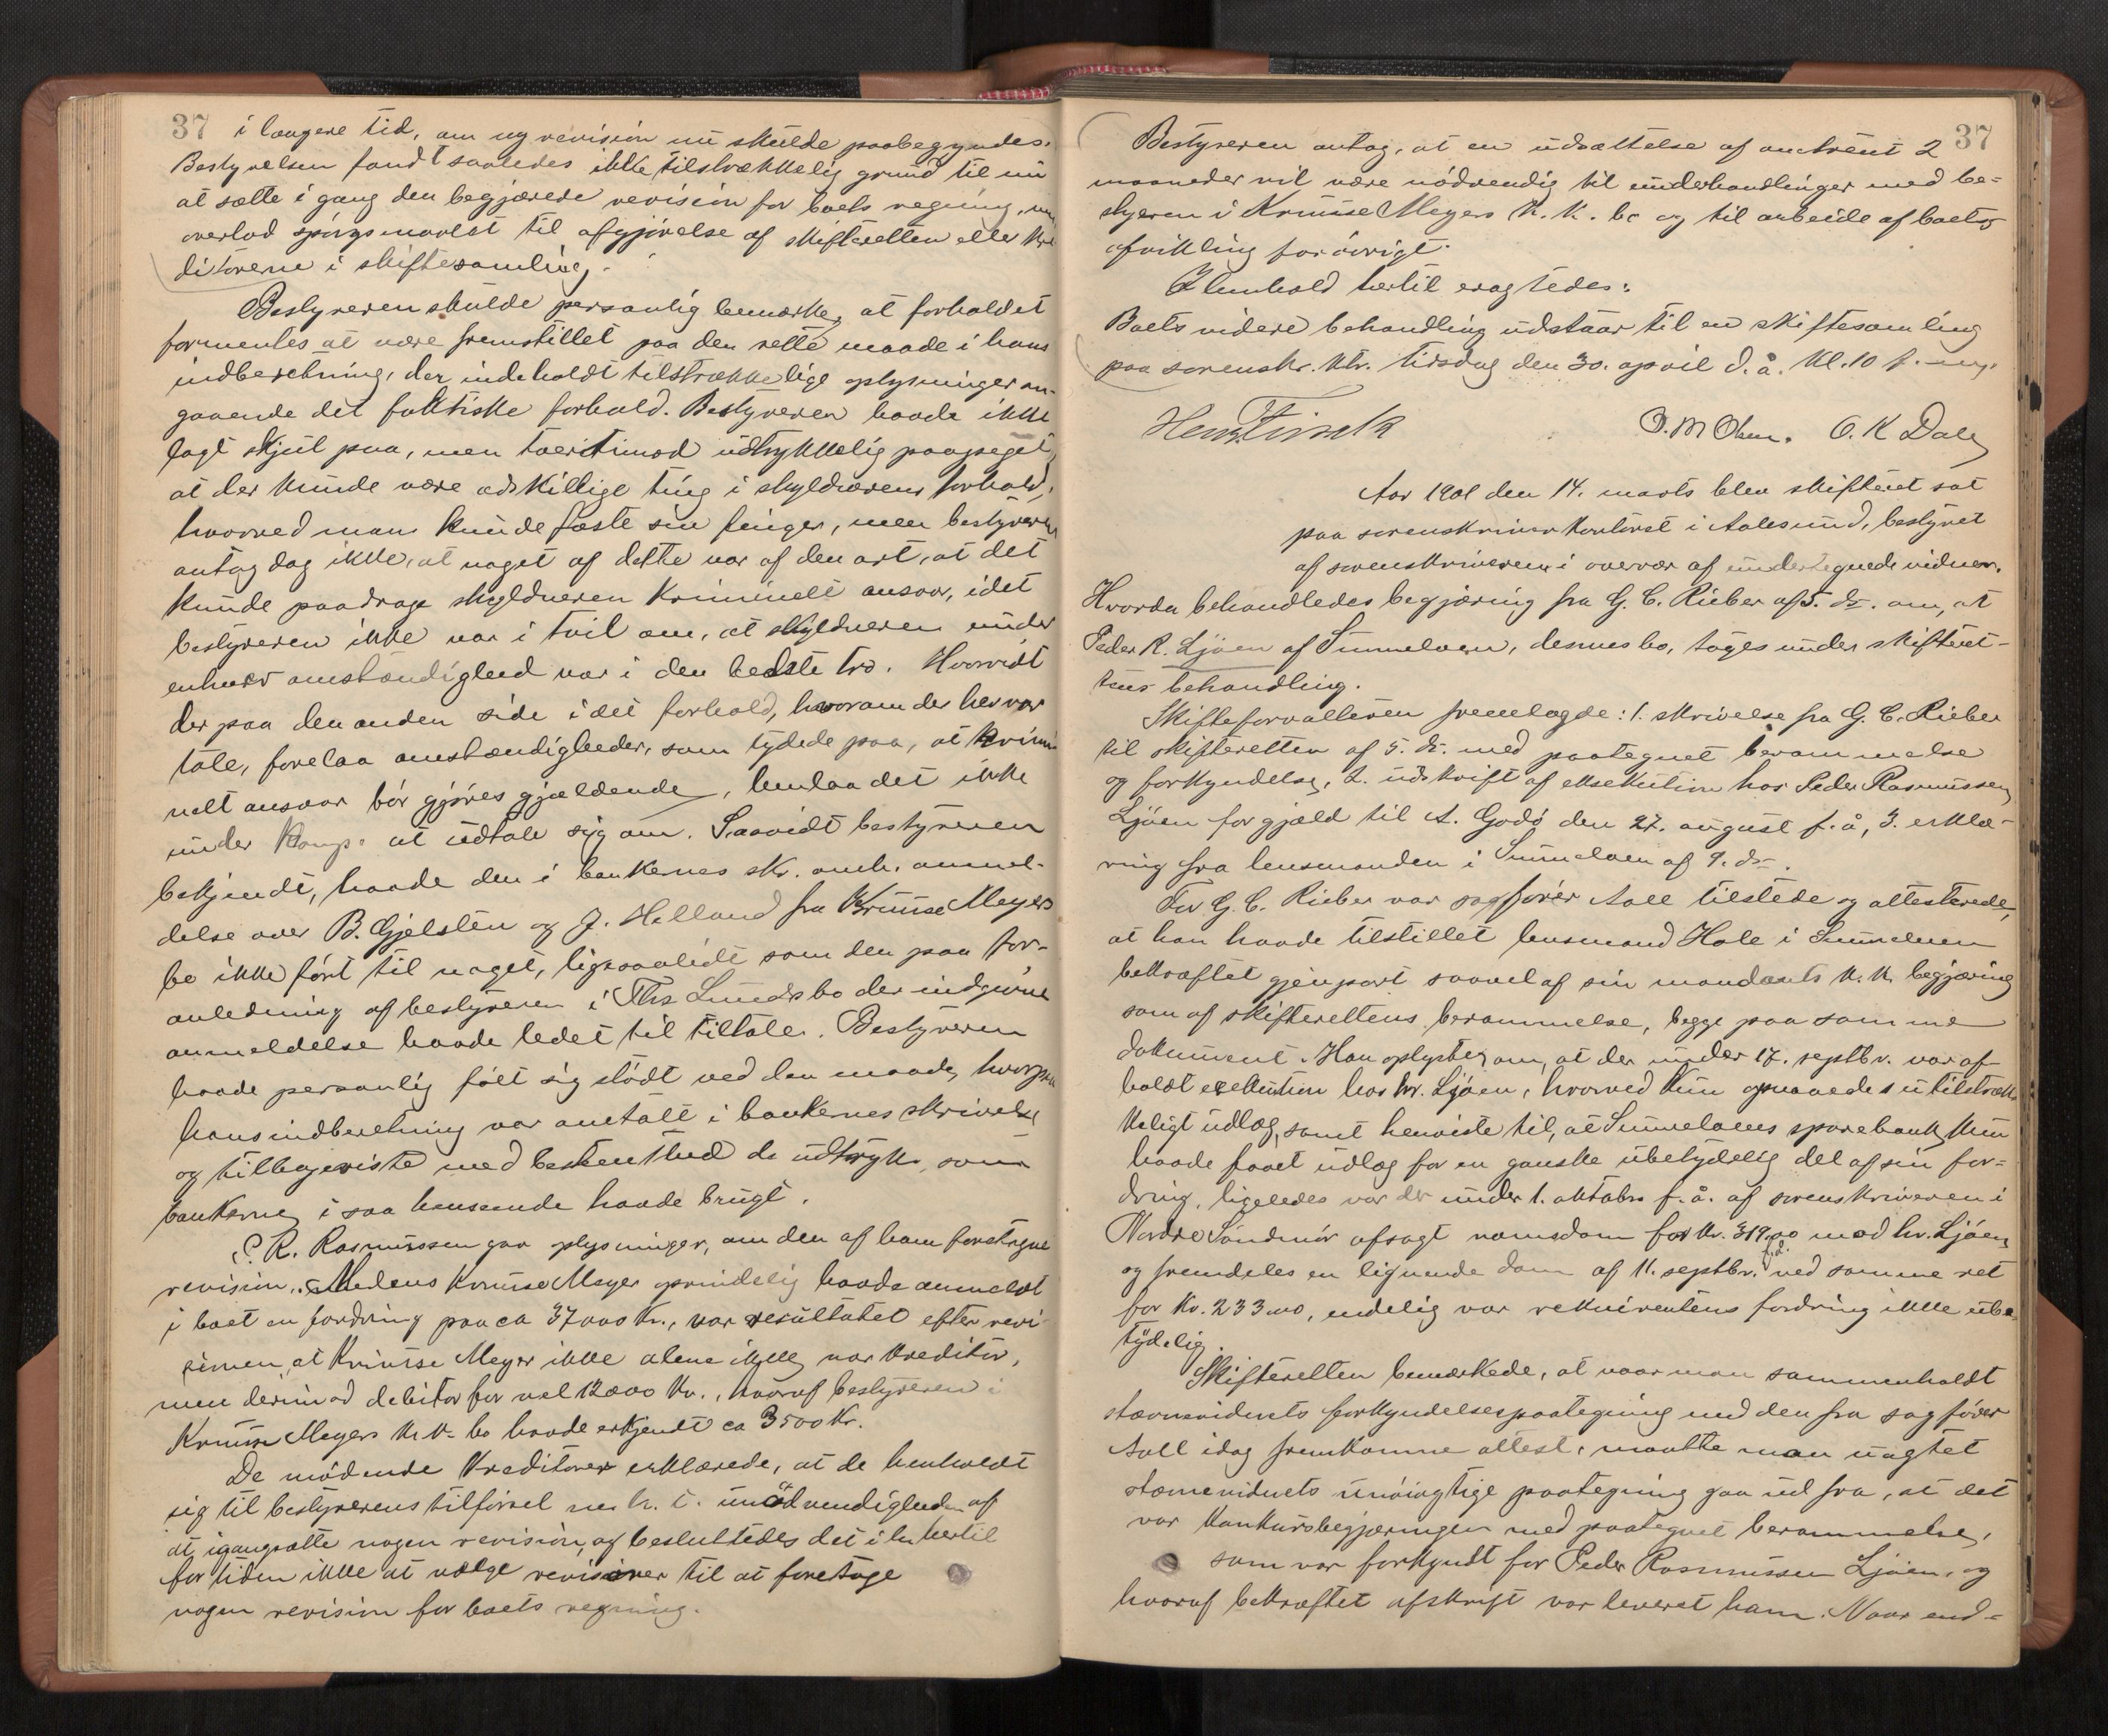 37 i længere tid, om ny revision nu skulde paabegyndes.
Bestyrelsen fandt saaledes ikke tilstrækkelig grund til nu
at sætte i gang den begjærede revision for boets regning, men
overlod spörgsmaalet til afgjörelse af skifteretten eller kre
ditorerne i skiftesamling.
Bestyreren skulde personlig bemærke, at forholdet
formentes at være fremstillet paa den rette maade i hans
indberetning, der indeholdt tilstrækkelige oplysninger an-
gaaende det faktiske forhold. Bestyreren havde ikke
lagt skjul paa, men tvertimod udtrykkelig paapeget,
at der kunde være adskillige ting i skyldnerens forhold,
hvorved man kunde fæste sin finger, men bestyreren
antog dog ikke, at noget af dette var af den art, at det
kunde paadrage skyldneren kriminelt ansvar, idet
bestyreren ikke var i tvil om, at skyldneren under
enhver omstændighed var i den bedste tro. Hvorvidt
der paa den anden side i det forhold, hvorom der her var
tale, forelaa omstændigheder, som tydede paa, at krimi
nelt ansvar bör gjöres gjældende, henlaa det ikke
under komp. at udtale sig om. Saavidt bestyreren
bekjendt, havde den i bankernes skr. omh. anmel-
delse over B. Gjelsten og J. Helland fra Kruuse Meyers
bo ikke fört til noget, ligesaalidt som den paa for-
anledning af bestyreren i Ths Lunds bo der indgivne
anmeldelse havde ledet til tiltale. Bestyreren
havde personlig fölt sig stödt ved den maade, hvorpaa
hans indberetning var omtalt i bankernes skrivelse
og tilbageviste med bestemthed de udtryk, som
bankerne i saa henseende havde brugt.
C. R. Rasmussen gav oplysninger, om den af ham foretagne
revision. Medens Kruuse Meyer oprindelig havde anmeldt
i boet en fordring paa ca 37000 Kr., var resultatet efter revi-
sionen, at Kruuse Meyer ikke alene ikke var kreditor,
men derimod debitor for vel 12000 Kr., hvoraf bestyreren i
Kruuse Meyers k. k. bo havde erkjendt ca 3500 Kr.
De mödende kreditorer erklærede, at de henholdt
sig til bestyrerens tilförsel m. h. t. unödvendigheden af
at igangsætte nogen revision, og besluttedes det i hh. hertil
for tiden ikke at vælge revisorer til at foretage
nogen revision for boets regning.
37
Bestyreren antog, at en udsættelse af omtrent 2
maaneder vil være nödvendig til underhandlinger med be-
styreren i Kruuse Meyers k. k. bo og til arbeide af boets
afvikling forövrigt.
I henhold hertil eragtedes:
Boets videre behandling udstaar til en skiftesamling
paa sorenskr. ktr. tirsdag den 30. april d. å. kl. 10 f. mg.
Henr Finck O. M Olsen. O. K Dale
Aar 1901 den 14. marts blev skifteret sat
paa sorenskriverkontoret i Aalesund, bestyret
af sorenskriveren i overvær af undertegnede vidner.
Hvorda behandledes begjæring fra G. C. Rieber af 5. ds. om, at
Peder R. Ljöen af Sunnelven, dennes bo, tages under skifteret-
tens behandling.
Skifteforvalteren fremlagde: 1. skrivelse fra G. C. Rieber
til skifteretten af 5. ds. med paategnet berammelse
og forkyndelse, 2. udskrift af eksekution hos Peder Rasmussen
Ljöen for gjæld til A. Godö den 27. august f. å, 3. erklæ-
ring fra lensmanden i Sunnelven af 9. ds.
For G. C. Rieber var sagförer Aall tilstede og attesterede,
at han havde tilstillet lensmand Hole i Sunnelven
bekræftet gjenpart saavel af sin mandants k. k. begjæring
som af skifterettens berammelse, begge paa samme
dokument. Han oplyste om, at der under 17. septbr. var af-
holdt exekution hos hr. Ljöen, hvorved kun opnaaedes utilstræk-
keligt udlæg, samt henviste til, at Sunnelvens sparebank kun
havde faaet udlæg for en ganske ubetydelig del af sin for-
dring, ligeledes var der under 1. oktober f. å. af sorenskriveren i
Nordre Söndmör afsagt namsdom for Kr. 319.00 mod hr. Ljöen,
og fremdeles en lignende dom af 11. septbr. f. å. ved samme ret
for Kr. 233.00, endelig var rekvirentens fordring ikke ube
tydelig.
Skifteretten bemærkede, at naar man sammenholdt
stævnevidnets forkyndelsespaategning med den fra sagförer
Aall idag fremkomne attest, maatte man uagtet
stævnevidnets unöiagtige paategning gaa ud fra, at det
var konkursbegjæringen med paategnet berammelse,
som var forkyndt for Peder Rasmussen Ljöen, og
hvoraf bekræftet afskrift var leveret ham. Naar end-